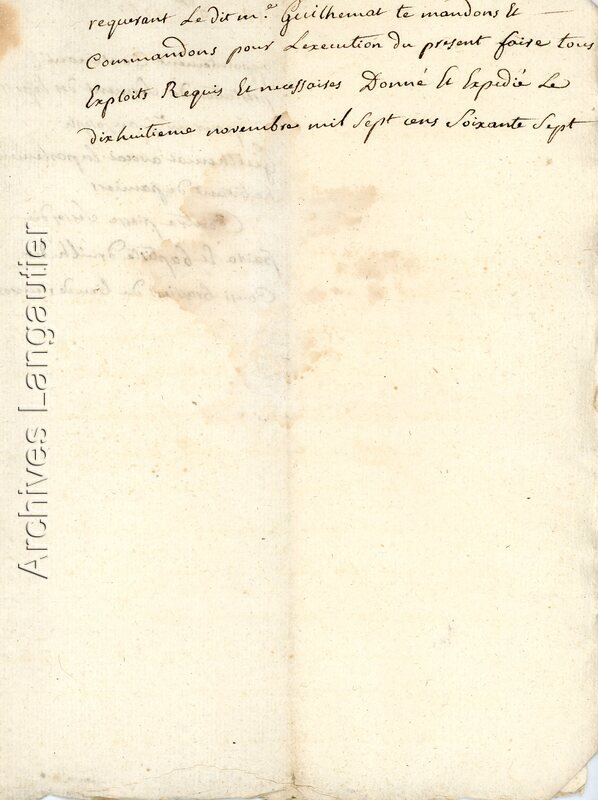 requerant Le dit m.e Guilhemat te mandons Et
Commandons pour Lexecution du present faire tous
Exploits Requis Et necessaires Donné Et Expedié Le
dixhuitieme novembre mil Sept cens Soixante Sept
Archives Langautier